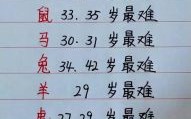 鼠 33.35 岁最难
马 30.31 岁最难
兔 34.42 岁最难
羊 29 岁最难
27.29 岁最难